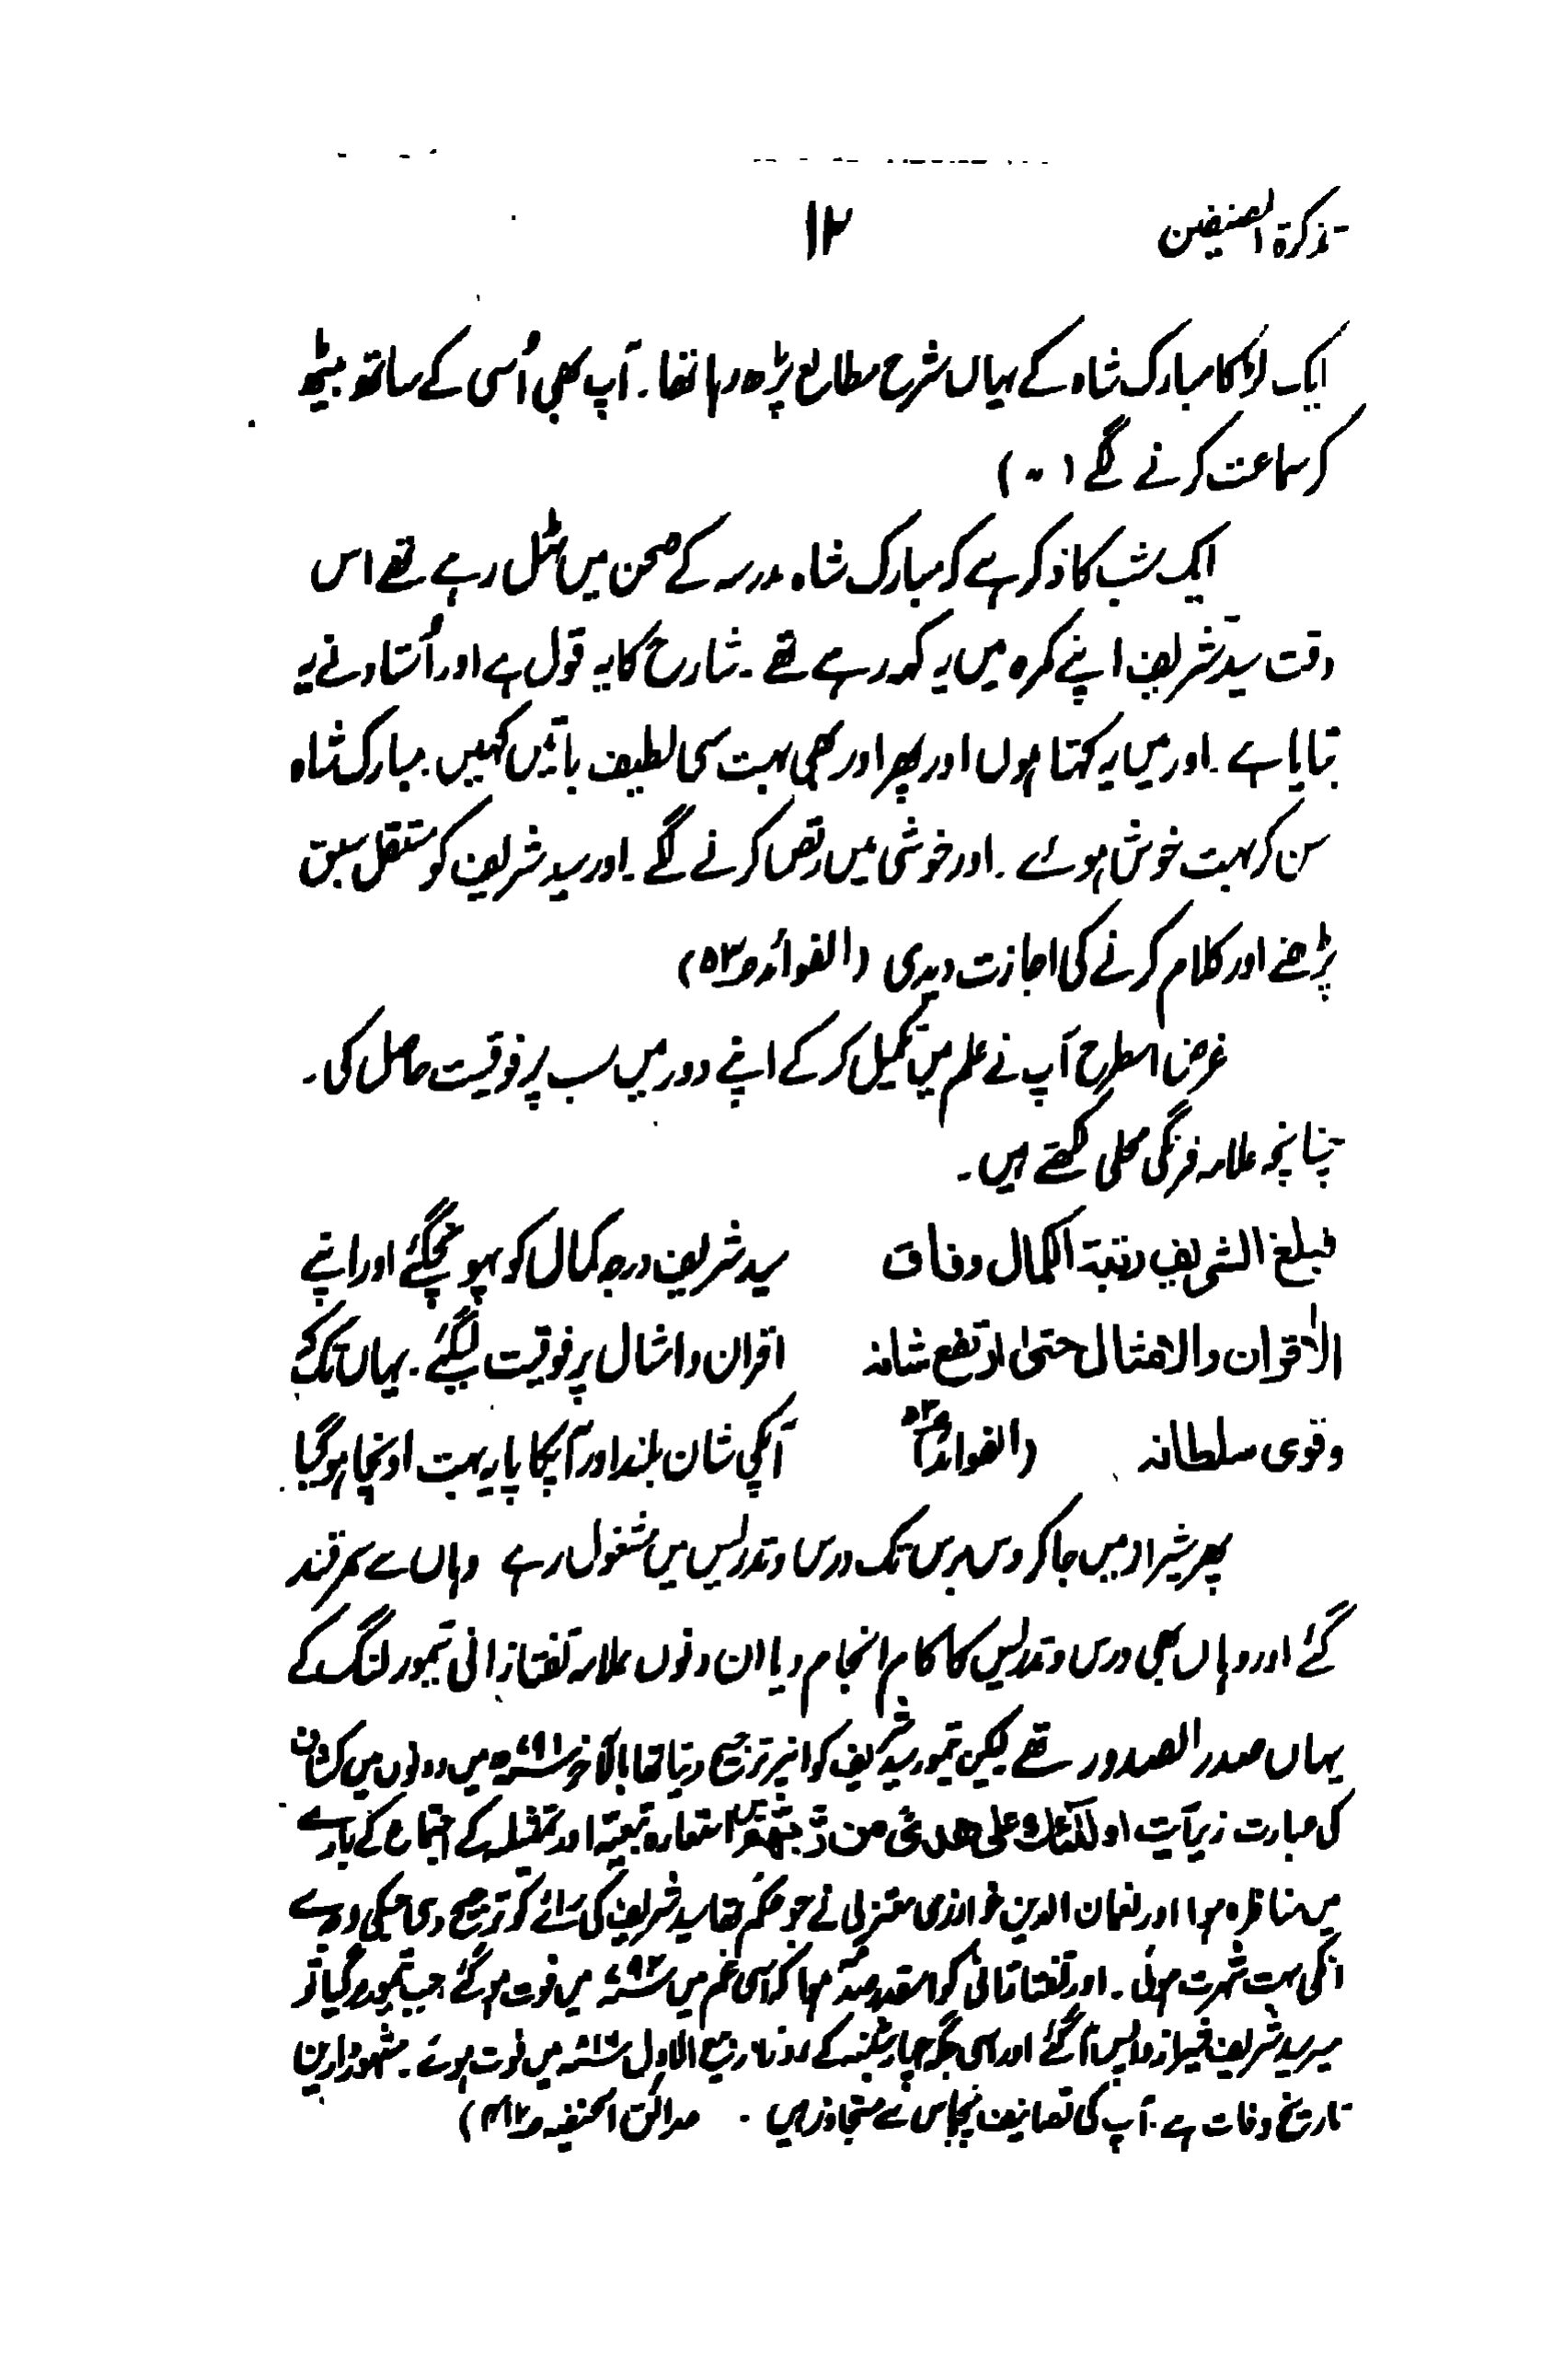 تذکرۃ المصنفین
۱۲
ایک لڑکا مبارک شاہ کے یہاں شرح مطالع پڑھ رہا تھا۔ آپ بھی اُسی کے ساتھ بیٹھ
کر سماعت کرنے لگے ( )
ایک شب کا ذکر ہے کہ مبارک شاہ مدرسہ کے صحن میں ٹہل رہے تھے اس
وقت سید شریف اپنے کمرہ میں یہ کہہ رہے تھے۔ شارح کا یہ قول ہے اور اُستاد نے یہ
بتایا ہے۔ اور میں یہ کہتا ہوں اور پھر اور بھی بہت سی لطیف باتیں کہیں۔ مبارک شاہ
سن کر بہت خوش ہوئے۔ اور خوشی میں رقص کرنے لگے۔ اور سید شریف کو مستقل سبق
پڑھنے اور کلام کرنے کی اجازت دیدی (الفوائد ص۵۳)
غرض اسطرح آپ نے علم میں تکمیل کر کے اپنے دور میں سب پر فوقیت حاصل کی۔
چنانچہ علامہ فرنگی محلی لکھتے ہیں۔
فبلغ الشریف رتبۃ الکمال وفاق سید شریف درجہ کمال کو پہونچگئے اور اپنے
الاقران والامثال حتیٰ ارتفع شانہ اقران و امثال پر فوقیت لیگئے۔ یہاں تک کہ
وقوی سلطانہ (الفوائد ص۵۳) آپکی شان بلند اور آپکا پایہ بہت اونچا ہوگیا
پھر شیراز میں جاکر دس برس تک درس و تدریس میں مشغول رہے وہاں سے سمرقند
گئے اور وہاں بھی درس و تدریس کا کام انجام دیا ان دنوں علامہ تفتازانی تیمور لنگ کے
یہاں صدر الصدور تھے لیکن تیمور سید شریف کو انپر ترجیح دیتا تھا بالآخر ۷۹۱ھ میں دونوں میں کشاف
کی عبارت زیر آیت اولٰئک علی ھدی من ربھم میں استعارہ تبعیۃ اور تمثیلیہ کے اجتماع کے بارے
میں مناظرہ ہوا اور نعمان الدین خوارزمی معتزلی نے جو حکم تھا سید شریف کی رائے کو ترجیح دی جسکی وجہ سے
انکی بہت شہرت ہوئی۔ اور تفتازانی کو اسقدر صدمہ ہوا کہ اسی غم میں ۷۹۲ھ میں فوت ہوگئے جب تیمور مرگیا تو
میر سید شریف شیراز واپس آگئے اور اسی جگہ چار شنبہ کے روز ربیع الاول ۸۱۶ھ میں فوت ہوئے۔ مشہور دارین
تاریخ وفات ہے۔ آپ کی تصانیف پچاس سے متجاوز ہیں۔ حدائق الحنفیہ